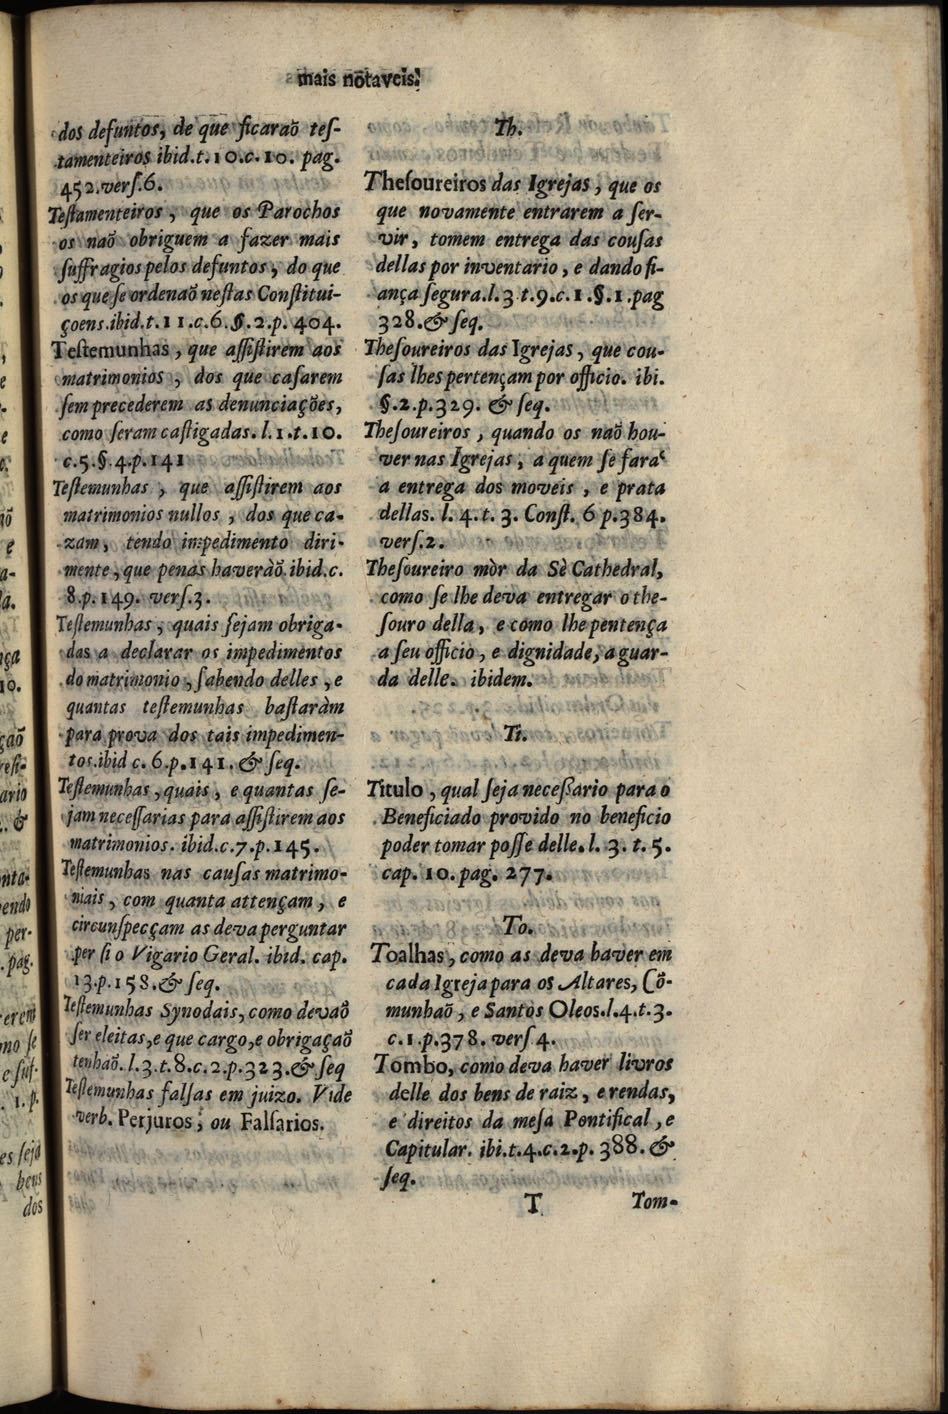 mais nõtaveis.
dos defuntos, de que ficaraõ teſ-
tamenteiros ibid.t.10.c.10. pag.
452.verſ.6.
Teſtamenteiros, que os Parochos
os naõ obriguem a fazer mais
ſuffragios pelos defuntos, do que
os que ſe ordenaõ neſtas Conſtitui-
çoens.ibid.t.11.c.6.§.2.p. 404.
Teſtemunhas, que aſſiſtirem aos
matrimonios, dos que caſarem
ſem precederem as denunciações,
como ſeram caſtigadas. l.1.t.10.
c.5.§.4.p.141
Teſtemunhas, que aſſiſtirem aos
matrimonios nullos, dos que ca-
zam, tendo impedimento diri-
mente, que penas haveràõ.ibid.c.
8.p.149. verſ.3.
Teſtemunhas, quais ſejam obriga-
das a declarar os impedimentos
do matrimonio, ſabendo delles, e
quantas teſtemunhas baſtaràm
para prova dos tais impedimen-
tos.ibid c. 6.p.141. & ſeq.
Teſtemunhas, quais, e quantas ſe-
jam neceſſarias para aſſiſtirem aos
matrimonios. ibid.c.7.p.145.
Teſtemunhas nas cauſas matrimo-
niais, com quanta attençam, e
circunſpecçam as deva perguntar
per ſi o Vigario Geral. ibid. cap.
13.p.158.& ſeq.
Teſtemunhas Synodais, como devaõ
ſer eleitas, e que cargo, e obrigaçaõ
tenhaõ. l.3.t.8.c.2.p.323.& ſeq
Teſtemunhas falſas em juizo. Vide
verb. Perjuros, ou Falſarios.
Th.
Theſoureiros das Igrejas, que os
que novamente entrarem a ſer-
vir, tomem entrega das couſas
dellas por inventario, e dando fi-
ança ſegura.l.3 t.9.c.1.§.1.pag
328.& ſeq.
Theſoureiros das Igrejas, que cou-
ſas lhes pertençam por officio. ibi.
§.2.p.329. & ſeq.
Theſoureiros, quando os naõ hou-
ver nas Igrejas, a quem ſe fara
a entrega dos moveis, e prata
dellas. l. 4. t. 3. Conſt. 6 p.384.
verſ.2.
Theſoureiro mòr da Sè Cathedral,
como ſe lhe deva entregar o the-
ſouro della, e como lhe pentença
a ſeu officio, e dignidade, a guar-
da delle. ibidem.
Ti.
Titulo, qual ſeja neceſſario para o
Beneficiado provido no beneficio
poder tomar poſſe delle. l. 3. t. 5.
cap. 10. pag. 277.
To.
Toalhas, como as deva haver em
cada Igreja para os Altares, Cõ-
munhaõ, e Santos Oleos.l.4.t.3.
c.1.p.378. verſ 4.
Tombo, como deva haver livros
delle dos bens de raiz, e rendas,
e direitos da meſa Pontifical, e
Capitular. ibi.t.4.c.2.p. 388. &
ſeq.
T Tom-